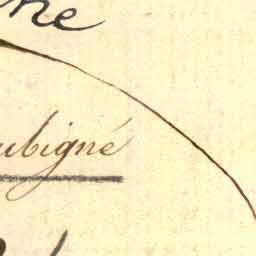 ne
ubigné